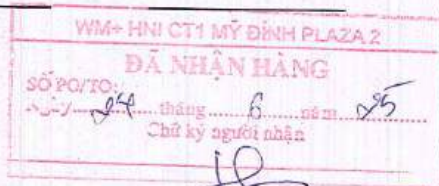 WM+ HNI CT1 MỸ ĐÌNH PLAZA 2
ĐÃ NHẬN HÀNG
SỐ PO/TO:
Ngày 24 tháng 6 năm 25
Chữ ký người nhận